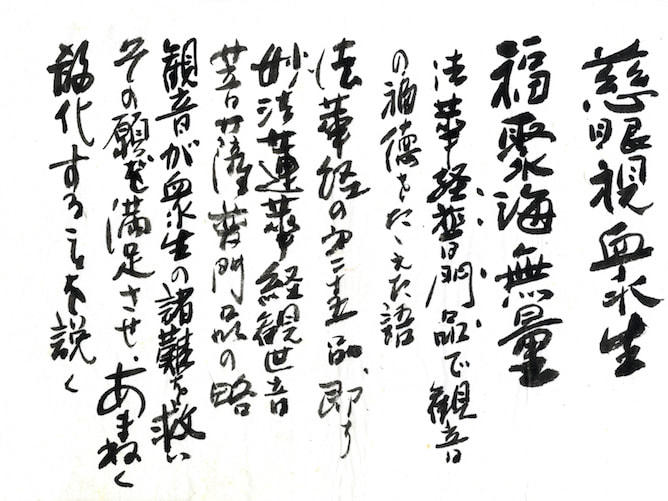 慈眼視衆生
福聚海無量
法華経普門品で観音
の福徳をたゝえた語
法華経の第二十五品、即ち
妙法蓮華経観世音
菩薩普門品の略
観音が衆生の諸難を救い
その願を満足させ、あまねく
教化することを説く